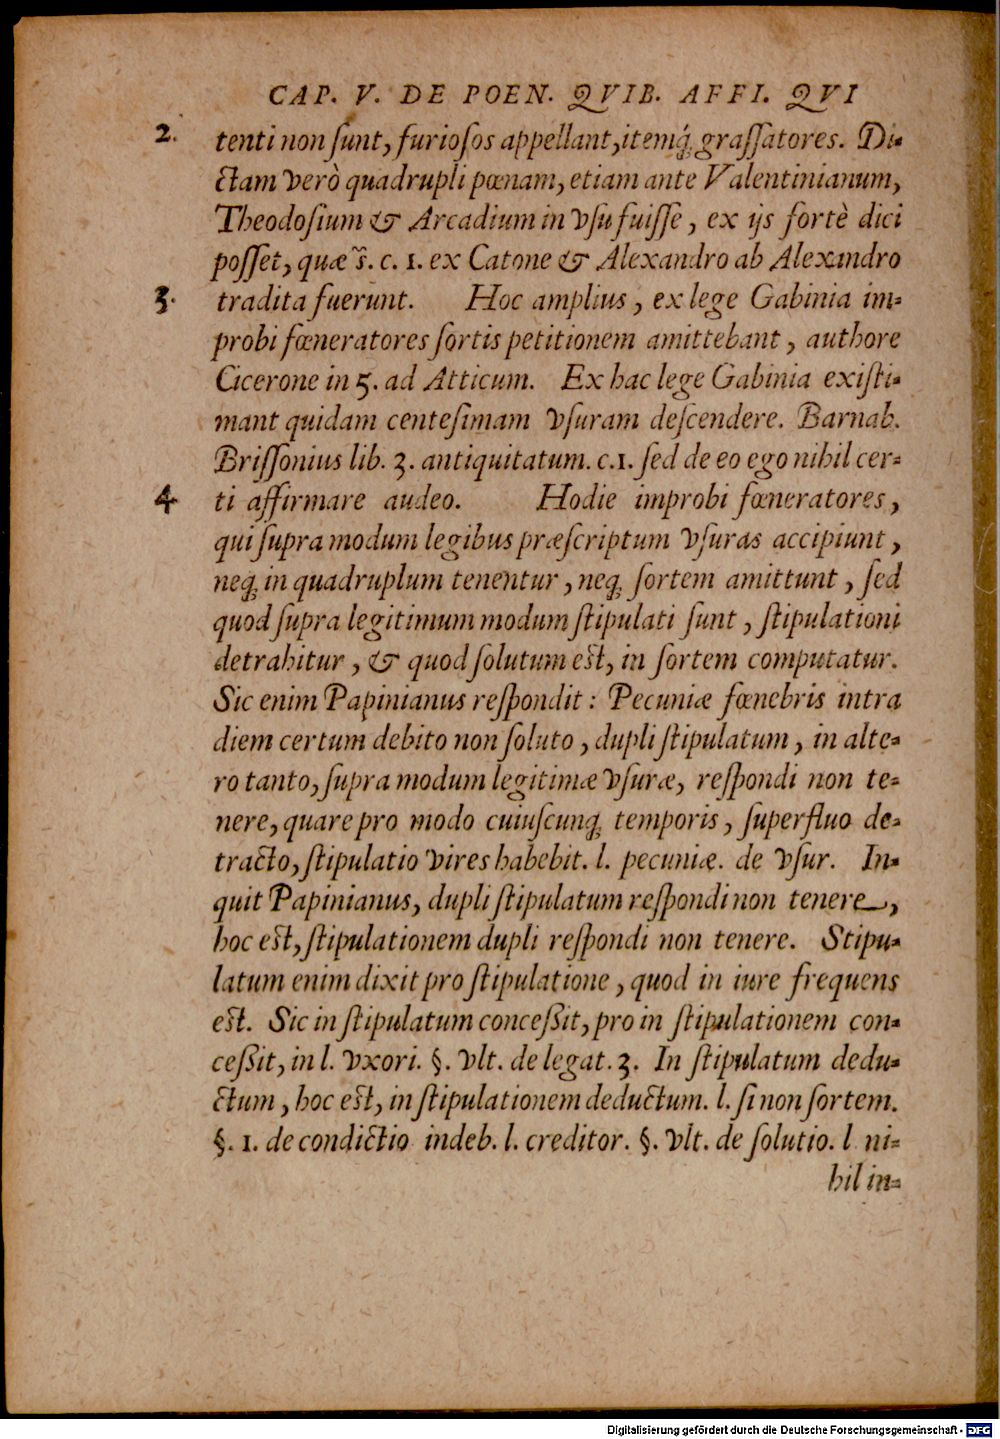 CAP. V. DE POEN. QVIB. AFFI. QVI
2. tenti non ſunt, furioſos appellant, itemq́; graſſatores. Di-
ctam verò quadrupli pœnam, etiam ante Valentinianum,
Theodoſium & Arcadium in vſu fuiſſe, ex ijs fortè dici
poſſet, quæ s̃. c. 1. ex Catone & Alexandro ab Alexandro
3. tradita fuerunt. Hoc amplius, ex lege Gabinia im-
probi fœneratores ſortis petitionem amittebant, authore
Cicerone in 5. ad Atticum. Ex hac lege Gabinia exiſti-
mant quidam centeſimam vſuram deſcendere. Barnab.
Briſſonius lib. 3. antiquitatum. c.1. ſed de eo ego nihil cer-
4 ti affirmare audeo. Hodie improbi fœneratores,
qui ſupra modum legibus præſcriptum vſuras accipiunt,
neq; in quadruplum tenentur, neq; ſortem amittunt, ſed
quod ſupra legitimum modum ſtipulati ſunt, ſtipulationi
detrahitur, & quod ſolutum eſt, in ſortem computatur.
Sic enim Papinianus reſpondit: Pecuniæ fœnebris intra
diem certum debito non ſoluto, dupli ſtipulatum, in alte-
ro tanto, ſupra modum legitimæ vſuræ, reſpondi non te-
nere, quare pro modo cuiuſcunq; temporis, ſuperfluo de-
tracto, ſtipulatio vires habebit. l. pecuniæ. de vſur. In-
quit Papinianus, dupli ſtipulatum reſpondi non tenere,
hoc eſt, ſtipulationem dupli reſpondi non tenere. Stipu-
latum enim dixit pro ſtipulatione, quod in iure frequens
eſt. Sic in ſtipulatum conceßit, pro in ſtipulationem con-
ceßit, in l. vxori. §. vlt. de legat. 3. In ſtipulatum dedu-
ctum, hoc eſt, in ſtipulationem deductum. l. ſi non ſortem.
§. 1. de condictio indeb. l. creditor. §. vlt. de ſolutio. l ni-
hil in-
Digitalisierung gefördert durch die Deutsche Forschungsgemeinschaft - DFG